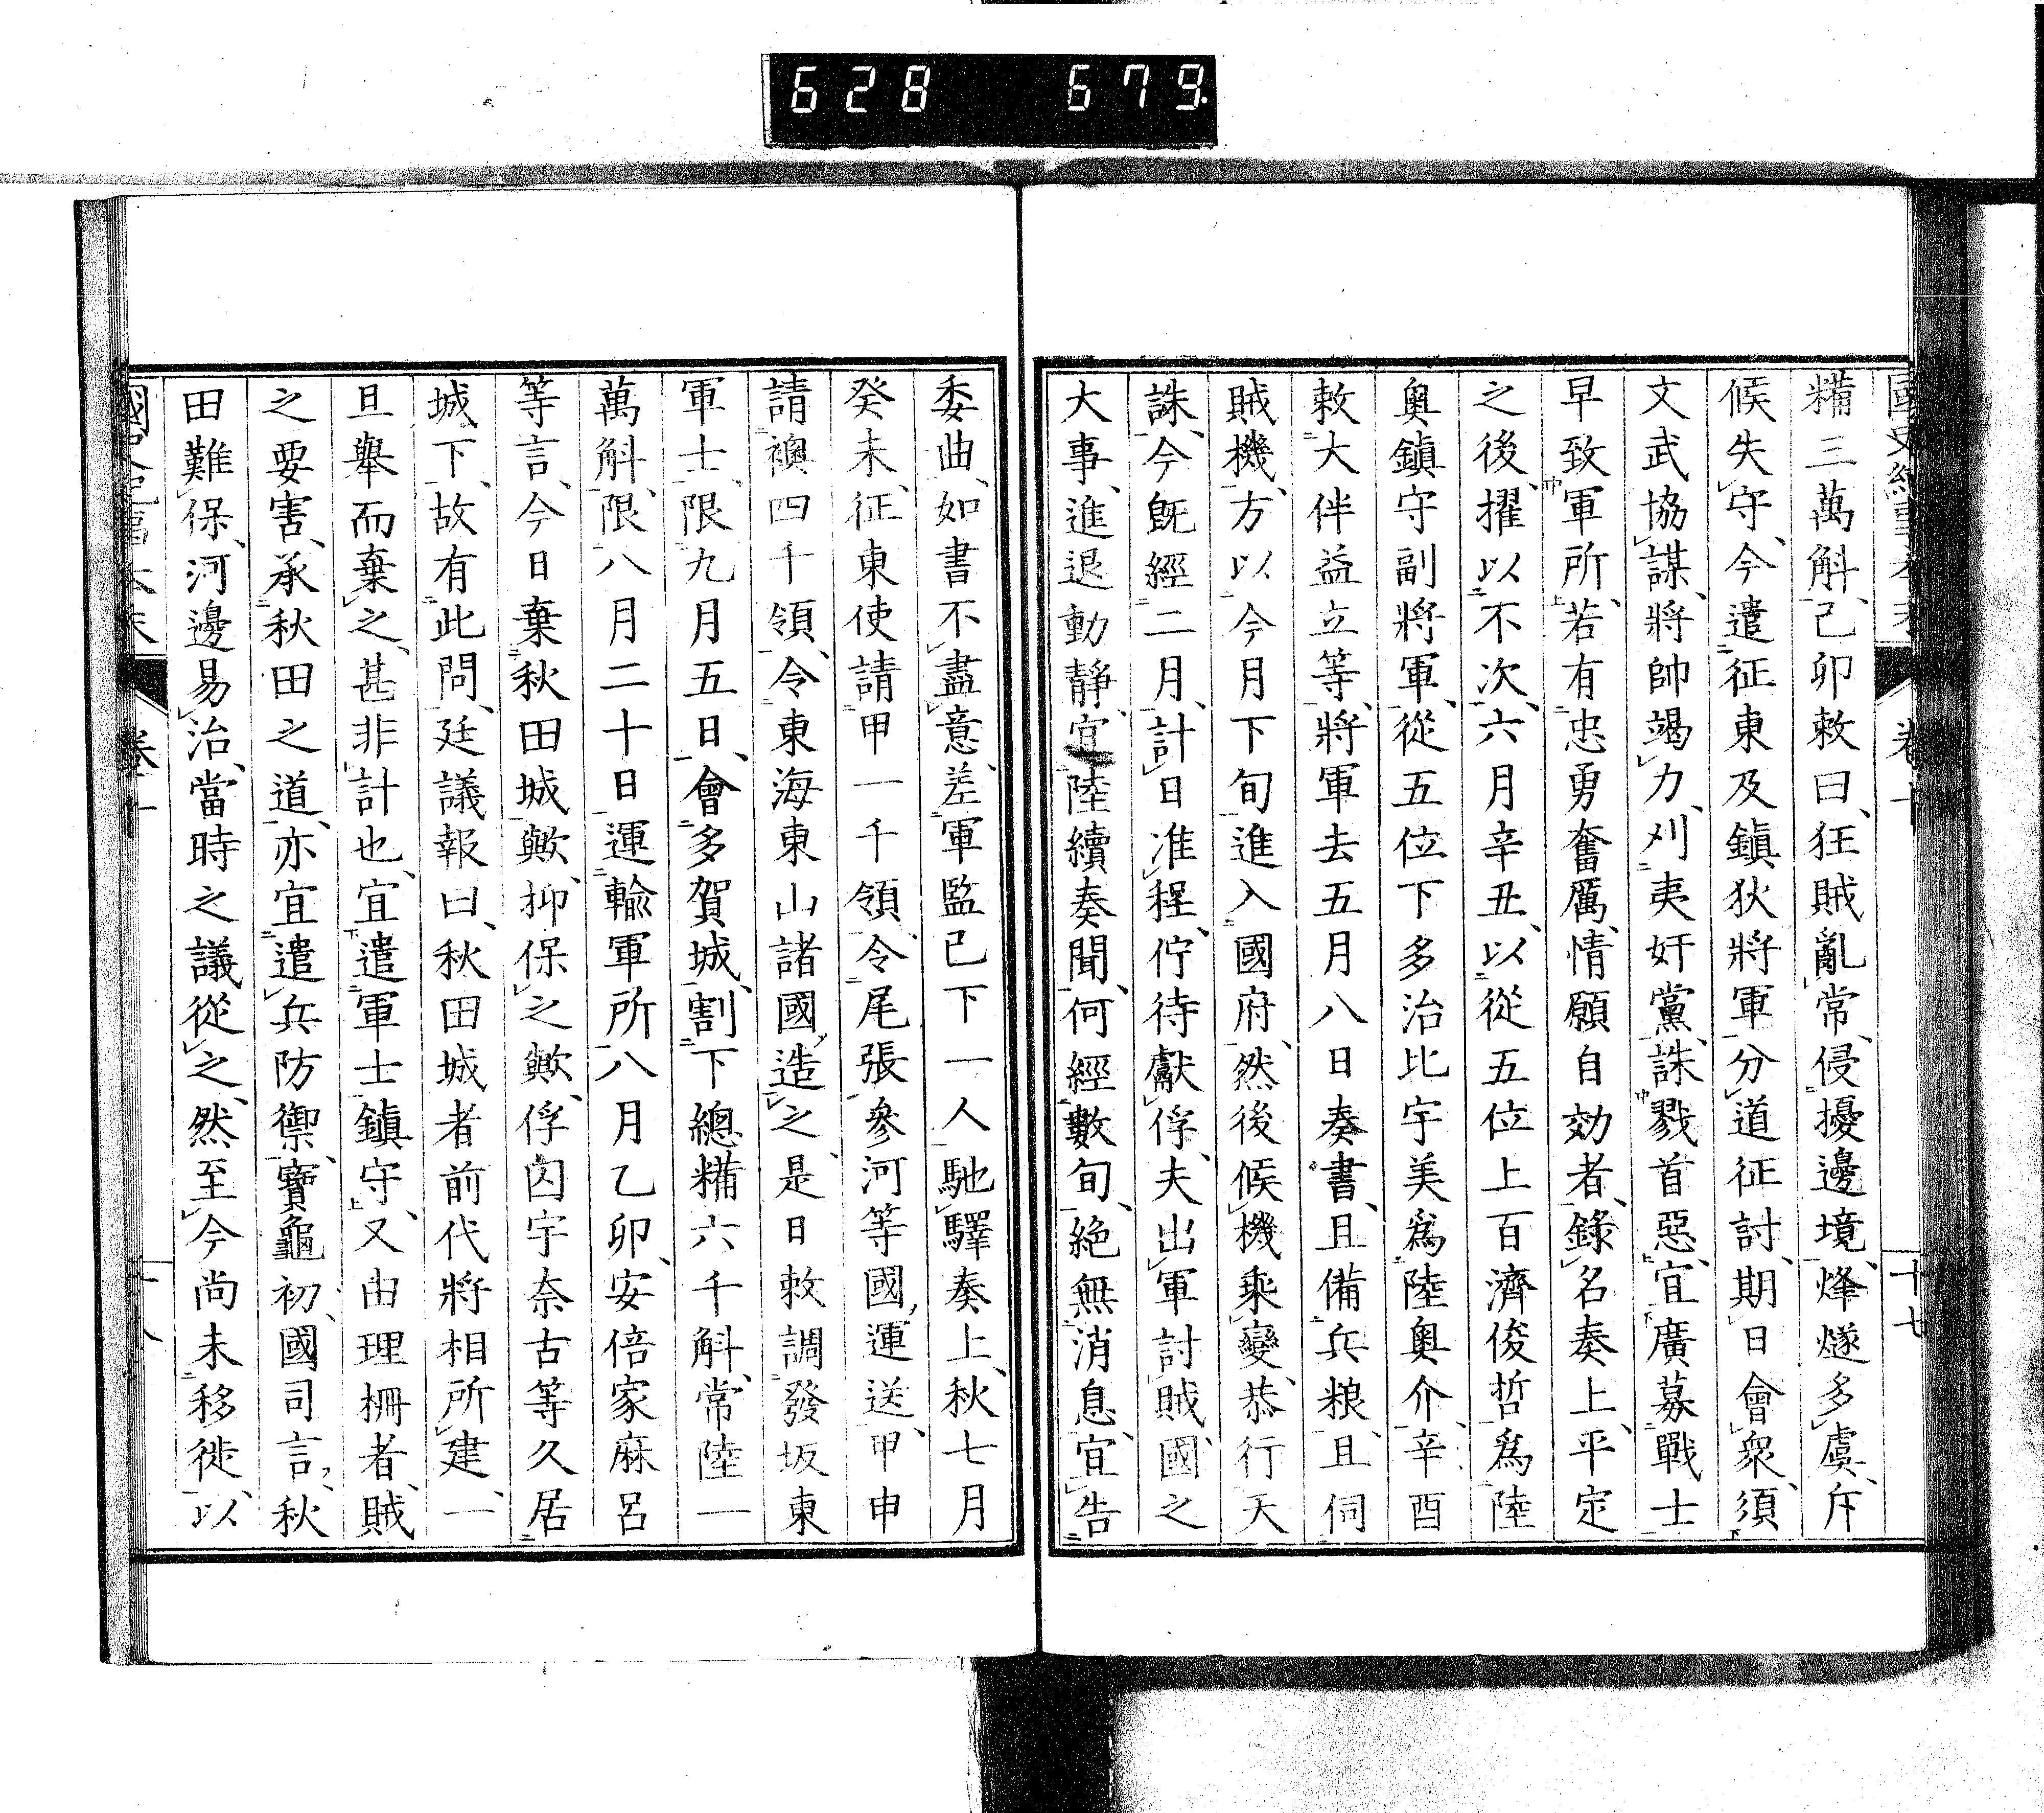 628 679.
卷十
十七
糒三萬斛、己卯敕曰、狂賊亂常、侵擾邊境、烽燧多虞、斥
候失守、今遣征東及鎮狄將軍分道征討、期日會衆、須
文武協謀、將帥竭力、刈夷奸黨、誅戮首惡、宜廣募戰士
早致軍所、若有忠勇奮厲、情願自効者、錄名奏上、平定
之後、擢以不次、六月辛丑、以從五位上百濟俊哲爲陸
奧鎮守副將軍、從五位下多治比宇美爲陸奧介、辛酉
敕大伴益立等、將軍去五月八日奏書、且備兵粮、且伺
賊機、方以今月下旬進入國府、然後候機乘變、恭行天
誅、今既經二月、計日准程、佇待獻俘、夫出軍討賊、國之
大事、進退動靜、宜陸續奏聞、何經數旬、絶無消息、宜告
委曲、如書不盡意、差軍監已下一人馳驛奏上、秋七月
癸未、征東使請甲一千領、令尾張參河等國、運送、甲申
請襖四千領、令東海東山諸國、造之、是日敕調發坂東
軍士、限九月五日、會多賀城、割下總糒六千斛、常陸一
萬斛、限八月二十日運輸軍所、八月乙卯、安倍家麻呂
等言、今日棄秋田城歟、抑保之歟、俘囚宇奈古等久居
城下、故有此問、廷議報曰、秋田城者前代將相所建、一
旦舉而棄之、甚非計也、宜遣軍士鎮守、又由理柵者、賊
之要害、承秋田之道、亦宜遣兵防禦、寶龜初、國司言、秋
田難保、河邊易治、當時之議從之、然至今尚未移徙、以